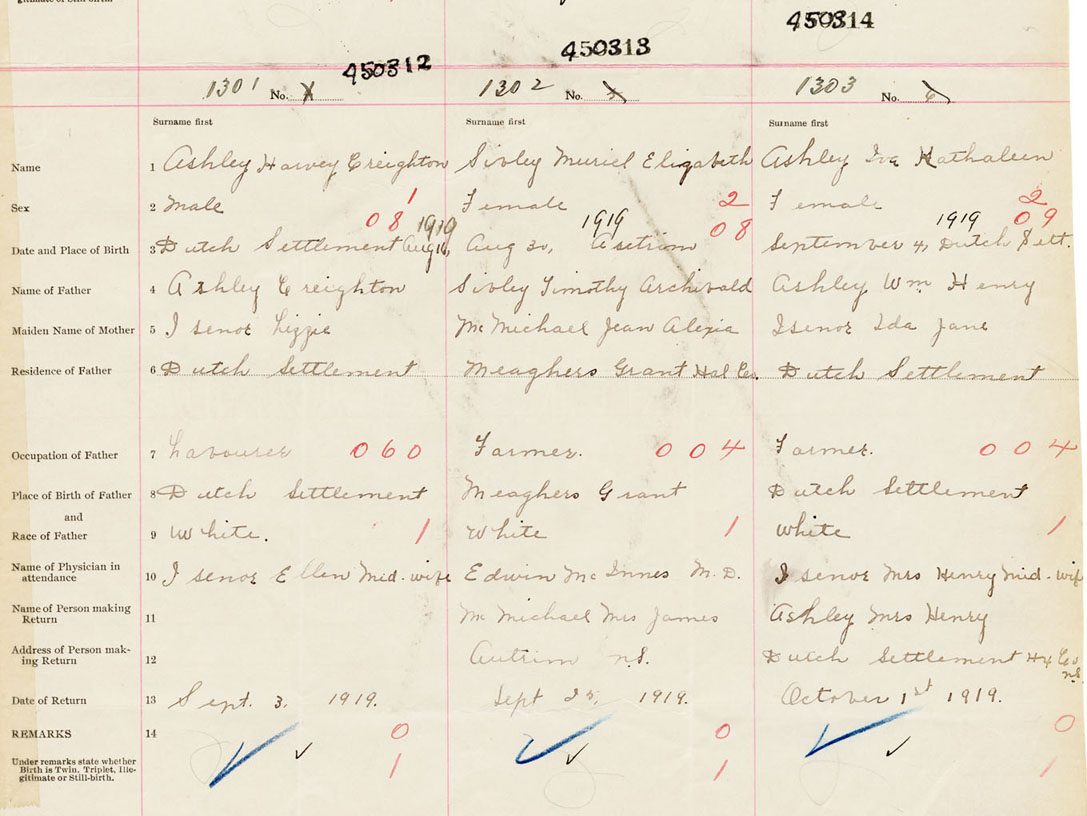 450314
450313
450312
1301 No. 1302 No. 1303 No. 6
Surname first Surname first Surname first
Name 1 Ashley Harvey Creighton Sibley Muriel Elizabeth Ashley Iva Kathaleen
Sex 2 Male 1 Female 2 Female 2
08 1919 1919 08 1919 09
Date and Place of Birth 3 Dutch Settlement Aug 16, Aug 30, September 4, Dutch Sett.
Name of Father 4 Ashley Creighton Sibley Timothy Archibald Ashley Wm Henry
Maiden Name of Mother 5 Isenor Lizzie McMichael Jean Alexia Isenor Ida Jane
Residence of Father 6 Dutch Settlement Meaghers Grant Hal Co. Dutch Settlement
Occupation of Father 7 Labourer 060 Farmer. 004 Farmer. 004
Place of Birth of Father 8 Dutch Settlement Meaghers Grant Dutch Settlement
and
Race of Father 9 White. 1 White 1 White 1
Name of Physician in
attendance 10 Isenor Ellen Mid-wife Edwin McInnes M.D. Isenor Mrs Henry Mid-wife
Name of Person making
Return 11 McMichael Mrs James Ashley Mrs Henry
Address of Person mak-
ing Return 12 Antrim N.S. Dutch Settlement Hx Co
N.S.
Date of Return 13 Sept. 3, 1919. Sept 1919. October 1st 1919.
REMARKS 14 0 0 0
Under remarks state whether
Birth is Twin, Triplet, Ille-
gitimate or Still-birth. 1 1 1